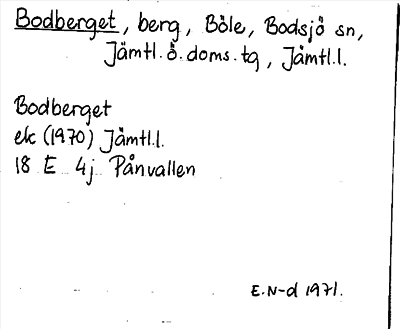 Bodberget, berg, Böle, Bodsjö sn,
Jämtl. ö. doms. tg, Jämtl.l.
Bodberget
ek (1970) Jämtl.l.
18 E 4j Pånvallen
E.N-d 1971.